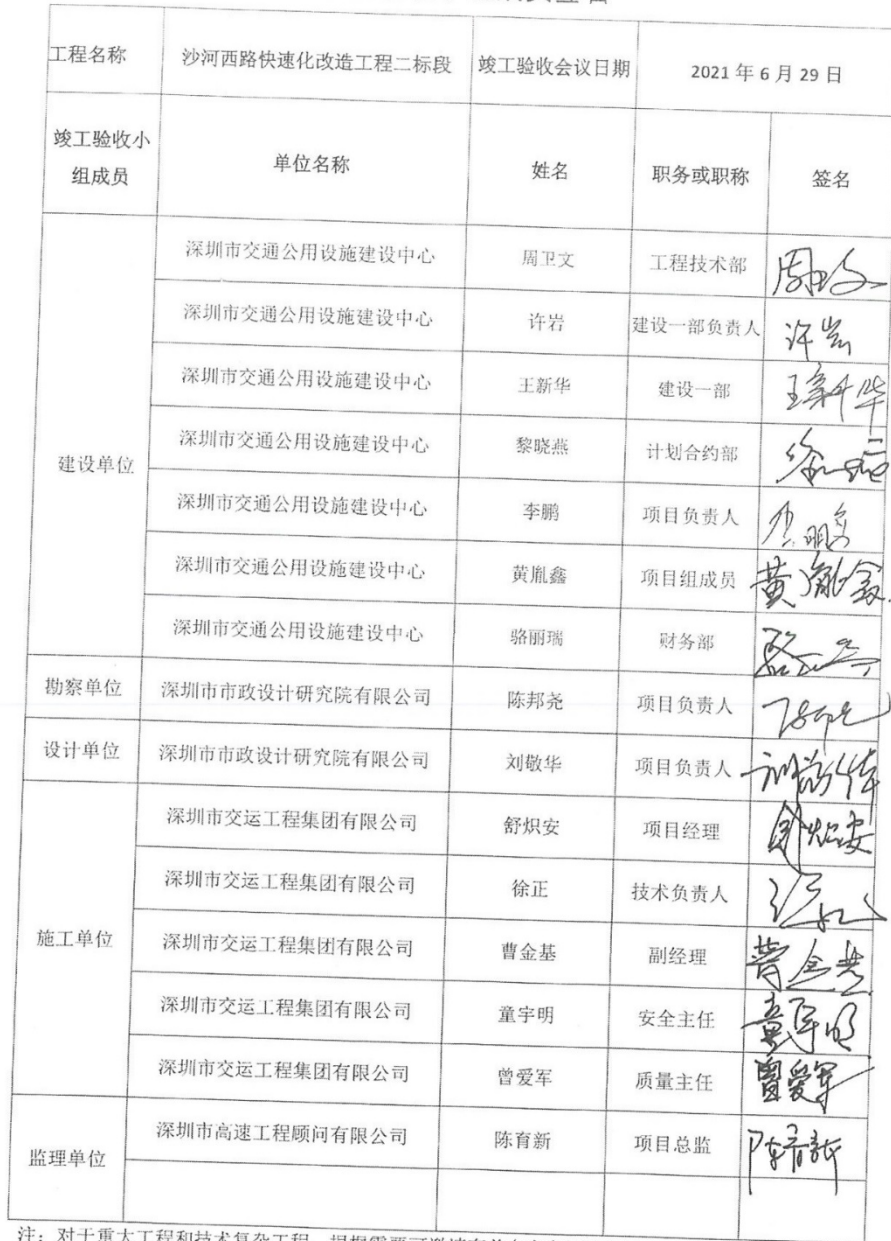 工程名称 沙河西路快速化改造工程二标段 竣工验收会议日期 2021 年 6 月 29 日
竣工验收小组成员 单位名称 姓名 职务或职称 签名
建设单位
深圳市交通公用设施建设中心 周卫文 工程技术部
深圳市交通公用设施建设中心 许岩 建设一部负责人 许岩
深圳市交通公用设施建设中心 王新华 建设一部 王新华
深圳市交通公用设施建设中心 黎晓燕 计划合约部
深圳市交通公用设施建设中心 李鹏 项目负责人 李鹏
深圳市交通公用设施建设中心 黄胤鑫 项目组成员 黄胤鑫
深圳市交通公用设施建设中心 骆丽瑞 财务部
勘察单位 深圳市市政设计研究院有限公司 陈邦尧 项目负责人
设计单位 深圳市市政设计研究院有限公司 刘敬华 项目负责人
施工单位
深圳市交运工程集团有限公司 舒炽安 项目经理 舒炽安
深圳市交运工程集团有限公司 徐正 技术负责人
深圳市交运工程集团有限公司 曹金基 副经理 曹金基
深圳市交运工程集团有限公司 童宇明 安全主任 童宇明
深圳市交运工程集团有限公司 曾爱军 质量主任 曾爱军
监理单位
深圳市高速工程顾问有限公司 陈育新 项目总监 陈育新
注：对于重大工程和技术复杂工程，根据需要可邀请